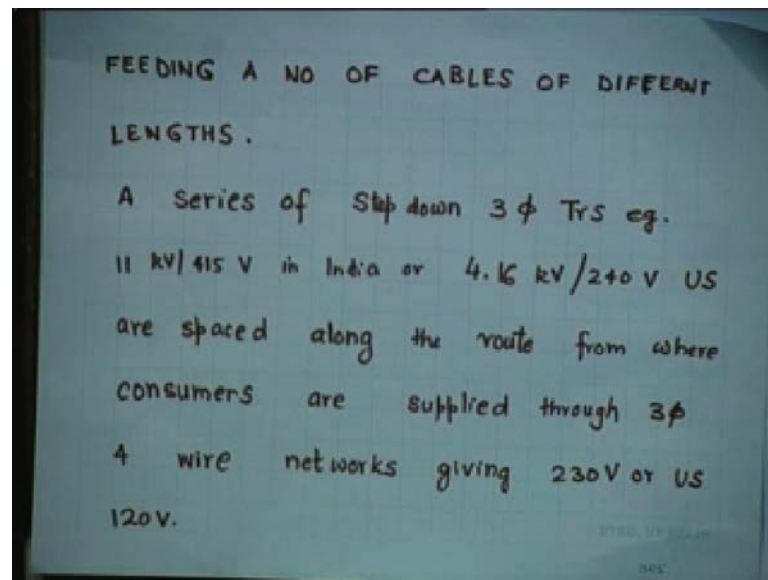 FEEDING A NO OF CABLES OF DIFFERNT
LENGTHS.
A series of Step down 3φ Trs eg.
11 kV/415 V in India or 4.16 kV/240 V US
are spaced along the route from where
consumers are supplied through 3φ
4 wire networks giving 230V or US
120V.